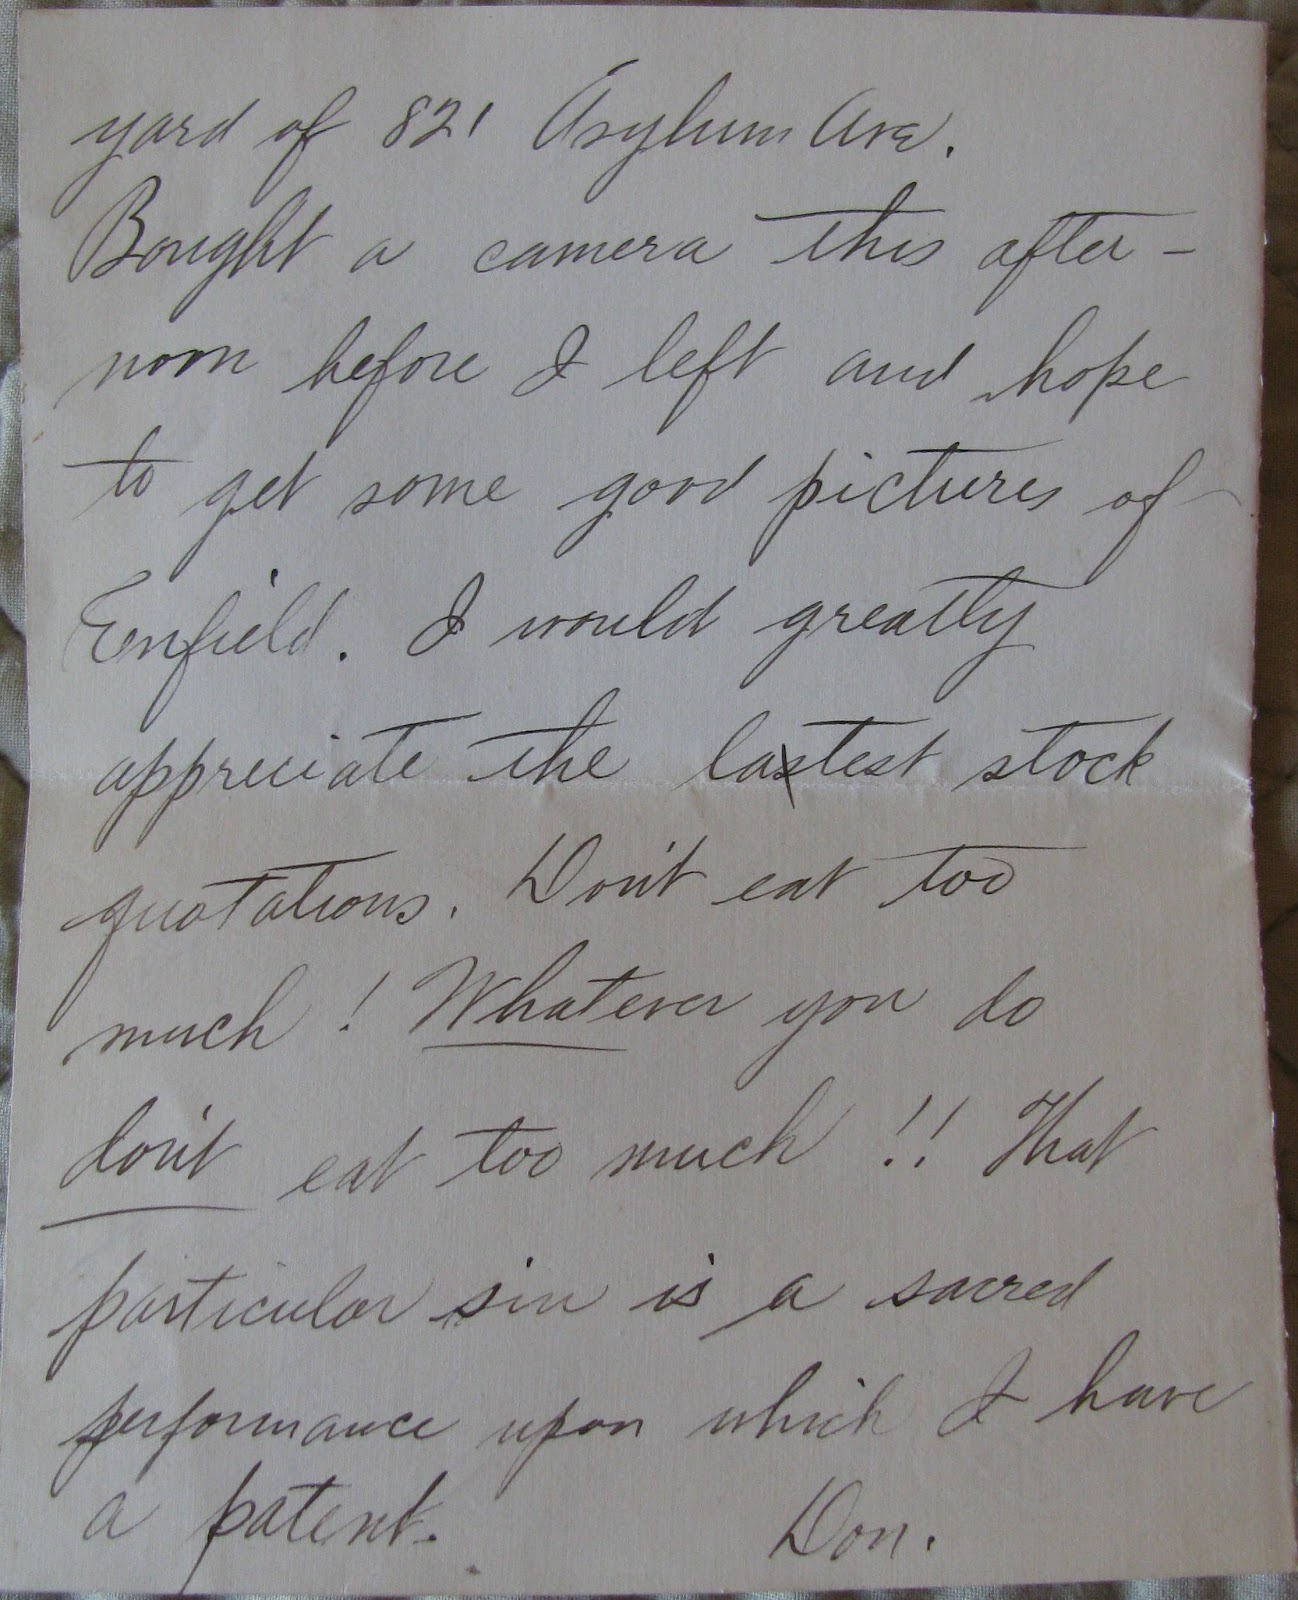 yard of 821 Asylum Ave.
Bought a camera this after-
noon before I left and hope
to get some good pictures of
Enfield. I would greatly
appreciate the lastest stock
quotations. Don't eat too
much! Whatever you do
don't eat too much!! That
particular sin is a sacred
performance upon which I have
a patent. Don.